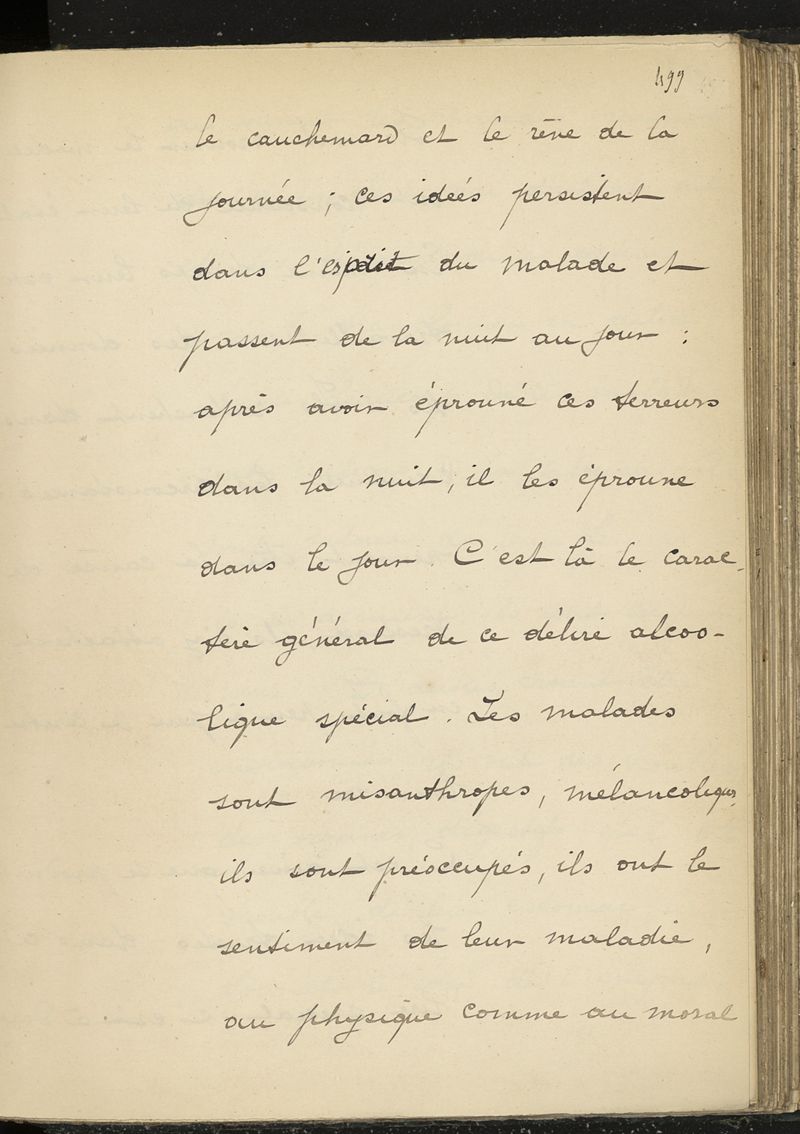 499
le cauchemard et le rêve de la
journée ; ces idées persistent
dans l'esprit du malade et
passent de la nuit au jour :
après avoir éprouvé ces terreurs
dans la nuit, il les éprouve
dans le jour. C'est là le carac-
tère général de ce délire alcoo-
lique spécial. Les malades
sont misanthropes, mélancoliques,
ils sont préoccupés, ils ont le
sentiment de leur maladie,
au physique comme au moral